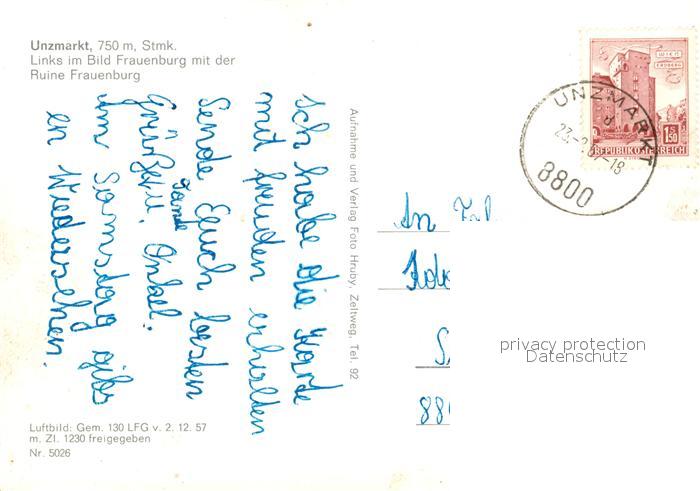 Unzmarkt, 750 m, Stmk.
Links im Bild Frauenburg mit der
Ruine Frauenburg
Ich habe die Karte
mit freuden erhalten
Sende Euch besten
Grüße u. Onkel.
Tante
im Samstag gibs
en Wiedersehen.
Luftbild: Gem. 130 LFG v. 2. 12. 57
m. Zl. 1230 freigegeben
Nr. 5026
Aufnahme und Verlag Foto Hruby, Zeltweg, Tel. 92
WIEN
ERDBERG
S 1.50
REPUBLIK ÖSTERREICH
UNZMARKT
8800
An
privacy protection
Datenschutz